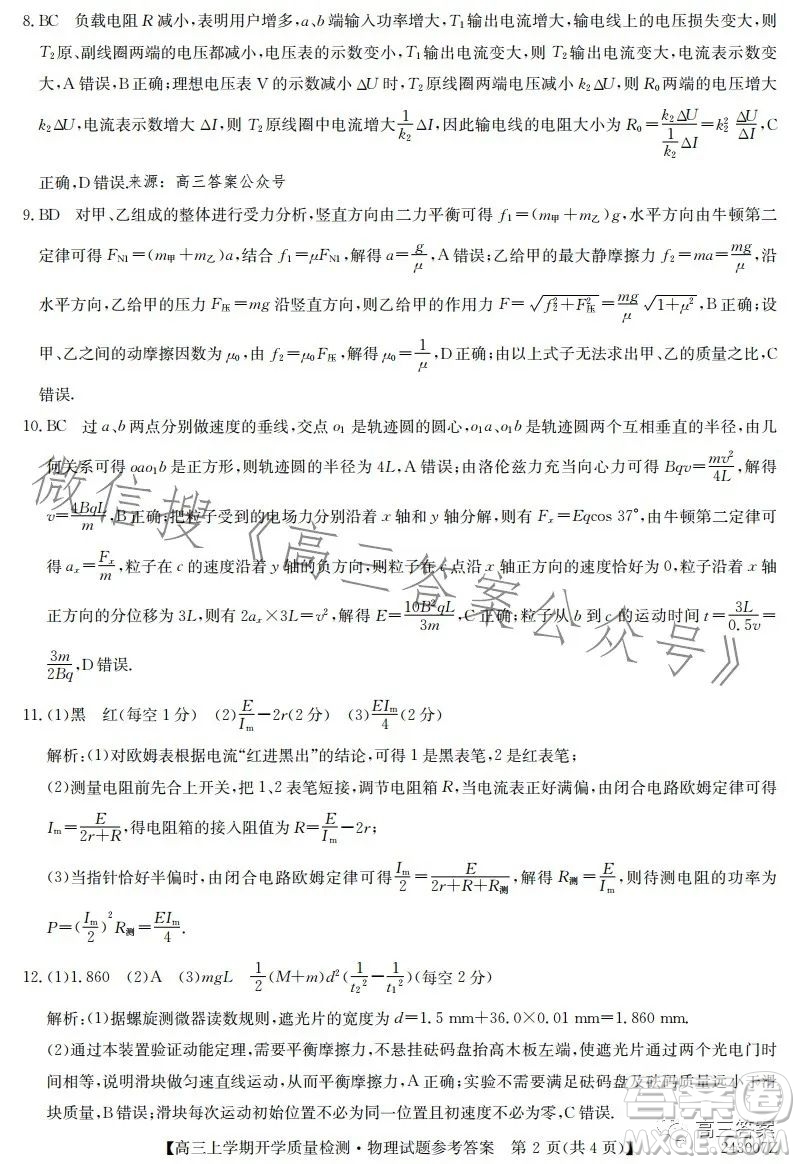 8. BC　负载电阻 R 减小,表明用户增多,a、b 端输入功率增大,T₁ 输出电流变大,输电线上的电压损失变大,则
T₂ 原、副线圈两端的电压都减小,电压表的示数变小,T₁ 输出电流变大,则 T₂ 输出电流变大,电流表示数变
大,A 错误,B 正确;理想电压表 V 的示数减小 ΔU 时,T₂ 原线圈两端电压减小 k₂ΔU,则 R₀ 两端的电压增大
k₂ΔU,电流表示数增大 ΔI,则 T₂ 原线圈中电流增大 1/k₂ ΔI,因此输电线的电阻大小为 R₀=k₂ΔU/(1/k₂ ΔI)=k₂² ΔU/ΔI,C
正确,D 错误.来源：高三答案公众号
9. BD　对甲、乙组成的整体进行受力分析,竖直方向由二力平衡可得 f₁=(m甲+m乙)g,水平方向由牛顿第二
定律可得 F_N1=(m甲+m乙)a,结合 f₁=μF_N1,解得 a=g/μ,A 错误;乙给甲的最大静摩擦力 f₂=ma=mg/μ,沿
水平方向,乙给甲的压力 F压=mg 沿竖直方向,则乙给甲的作用力 F=√(f₂²+F压²)=mg/μ √(1+μ²),B 正确;设
甲、乙之间的动摩擦因数为 μ₀,由 f₂=μ₀F压,解得 μ₀=1/μ,D 正确;由以上式子无法求出甲、乙的质量之比,C
错误.
10. BC　过 a、b 两点分别做速度的垂线,交点 o₁ 是轨迹圆的圆心,o₁a、o₁b 是轨迹圆两个互相垂直的半径,由几
何关系可得 oao₁b 是正方形,则轨迹圆的半径为 4L,A 错误;由洛伦兹力充当向心力可得 Bqv=mv²/4L,解得
v=4BqL/m,B 正确;把粒子受到的电场力分别沿着 x 轴和 y 轴分解,则有 Fₓ=Eqcos 37°,由牛顿第二定律可
得 aₓ=Fₓ/m,粒子在 c 的速度沿着 y 轴的负方向,则粒子在 c 点沿 x 轴正方向的速度恰好为 0,粒子沿着 x 轴
正方向的分位移为 3L,则有 2aₓ×3L=v²,解得 E=10B²qL/3m,C 正确;粒子从 b 到 c 的运动时间 t=3L/0.5v=
3m/2Bq,D 错误.
11. (1)黑　红(每空 1 分)　(2)E/Iₘ-2r(2 分)　(3)EIₘ/4(2 分)
解析:(1)对欧姆表根据电流“红进黑出”的结论,可得 1 是黑表笔,2 是红表笔;
(2)测量电阻前先合上开关,把 1、2 表笔短接,调节电阻箱 R,当电流表正好满偏,由闭合电路欧姆定律可得
Iₘ=E/(2r+R),得电阻箱的接入阻值为 R=E/Iₘ-2r;
(3)当指针恰好半偏时,由闭合电路欧姆定律可得Iₘ/2=E/(2r+R+R测),解得 R测=E/Iₘ,则待测电阻的功率为
P=(Iₘ/2)²R测=EIₘ/4.
12. (1)1.860　(2)A　(3)mgL　1/2(M+m)d²(1/t₂²-1/t₁²)(每空 2 分)
解析:(1)据螺旋测微器读数规则,遮光片的宽度为 d=1.5 mm+36.0×0.01 mm=1.860 mm.
(2)通过本装置验证动能定理,需要平衡摩擦力,不悬挂砝码盘抬高木板左端,使遮光片通过两个光电门时
间相等,说明滑块做匀速直线运动,从而平衡摩擦力,A 正确;实验不需要满足砝码盘及砝码质量远小于滑
块质量,B 错误;滑块每次初始位置与速度无关,不需要从同一位置由静止释放,C 错误.
【高三上学期开学质量检测·物理试题参考答案　第 2 页(共 4 页)】　243007Z
微信搜《高三答案公众号》
高三答案
答案圈
MXQE.COM